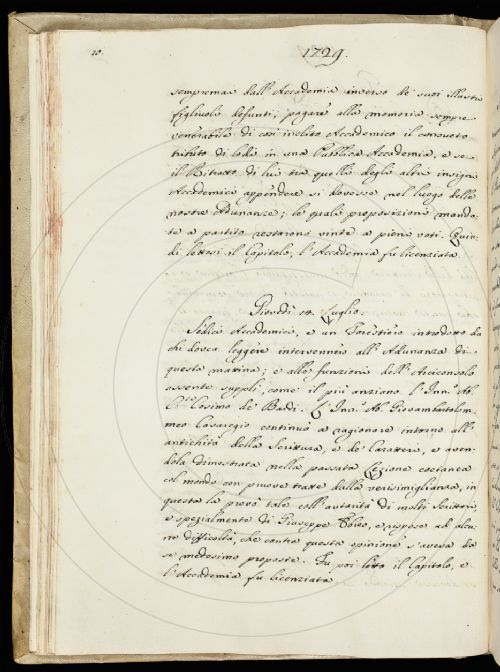 10.
1729.
sempremai dall'Accademia inverso de' suoi illustri
figliuoli defunti; pagare alla memoria sempre
venerabile di così inclito Accademico il consueto
tributo di lode in una Pubblica Accademia, e se
il Ritratto di lui tra quelli degli altri insigni
Accademici appendere si dovesse nel luogo delle
nostre Adunanze; le quali proposizioni manda-
te a partito restarono vinte a pieni voti. Quin-
di lettosi il Capitolo, l'Accademia fu licenziata.
Giovedì 14. Luglio.
Sedici Accademici, e un Forestiero introdotto da
chi dovea leggere intervennero all'Adunanza di
questa mattina; e alle funzioni dell'Arciconsolo
assente supplì, come il più anziano l'Inn.° Ab.
Cosimo de' Badi. L'Inn.° Ab. Giovambatolom-
meo Casaregio continuò a ragionare intorno all'
antichità della Scrittura, e de' Caratteri, e aven-
dola dimostrata nella passata Lezione coetanea
col mondo con pruove tratte dalla verisimiglianza, in
questa la provò tale coll'autorità di molti Scrittori,
e spezialmente di Giuseppe Ebreo, e rispose ad alcu-
ne difficoltà, che contra questa opinione s'aveva da
se medesimo proposte. Fu poi letto il Capitolo, e
l'Accademia fu licenziata